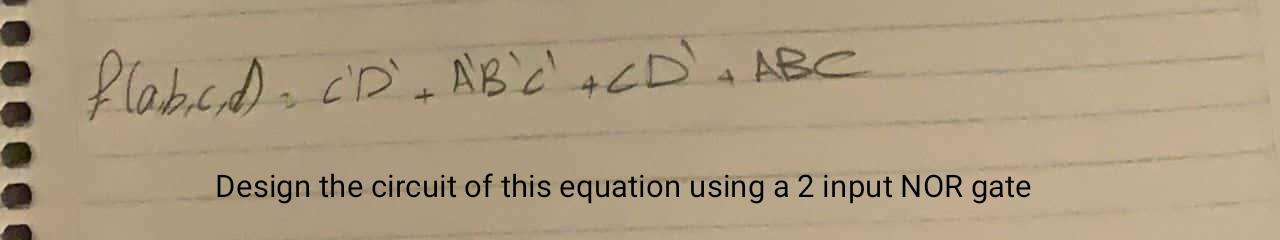 f(a,b,c,d) = C'D' + A'B'C' + CD' + ABC
Design the circuit of this equation using a 2 input NOR gate